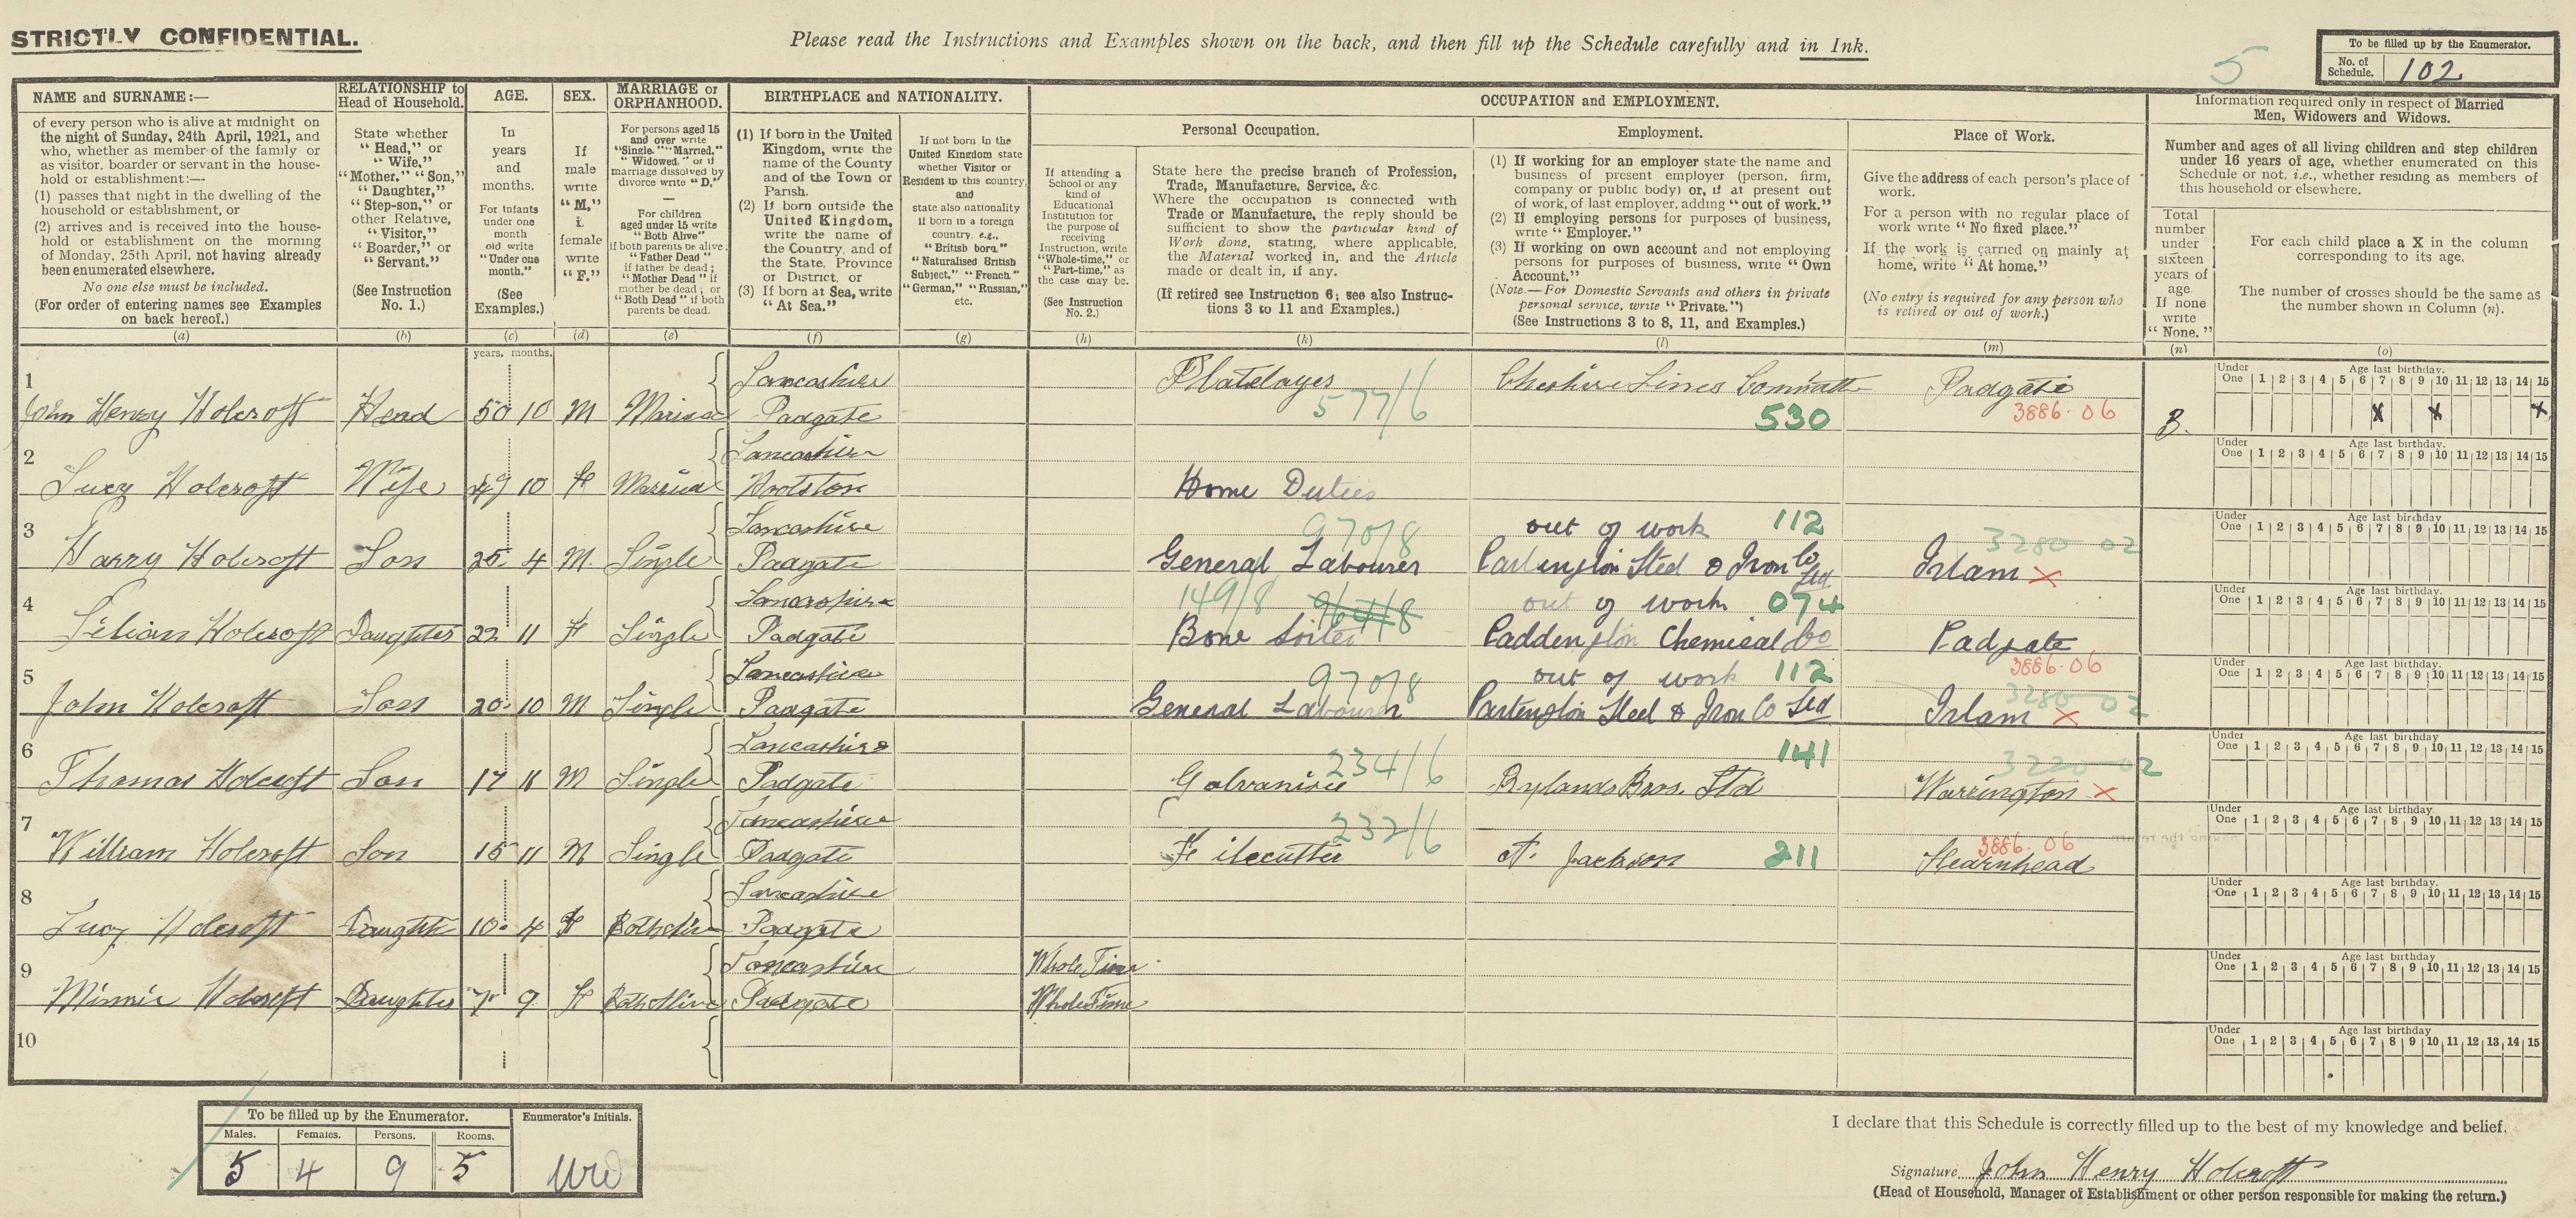 STRICTLY CONFIDENTIAL.
Please read the Instructions and Examples shown on the back, and then fill up the Schedule carefully and in Ink.
5
To be filled up by the Enumerator.
No. of Schedule. 102
NAME and SURNAME:—
of every person who is alive at midnight on
the night of Sunday, 24th April, 1921, and
who, whether as member of the family or
as visitor, boarder or servant in the house-
hold or establishment:—
(1) passes that night in the dwelling of the
household or establishment, or
(2) arrives and is received into the house-
hold or establishment on the morning
of Monday, 25th April, not having already
been enumerated elsewhere.
No one else must be included.
(For order of entering names see Examples
on back hereof.)
(a)
RELATIONSHIP to
Head of Household.
State whether
"Head," or
"Wife,"
"Mother," "Son,"
"Daughter,"
"Step-son," or
other Relative,
"Visitor,"
"Boarder," or
"Servant."
(See Instruction
No. 1.)
(b)
AGE.
In
years
and
months.
For infants
under one
month
old write
"Under one
month."
(See
Examples.)
(c)
SEX.
If
male
write
"M,"
if
female
write
"F."
(d)
MARRIAGE or
ORPHANHOOD.
For persons aged 15
and over write
"Single," "Married,"
"Widowed," or if
marriage dissolved by
divorce write "D."
For children
aged under 15 write
"Both Alive"
if both parents be alive;
"Father Dead"
if father be dead;
"Mother Dead" if
mother be dead; or
"Both Dead" if both
parents be dead.
(e)
BIRTHPLACE and NATIONALITY.
(1) If born in the United
Kingdom, write the
name of the County
and of the Town or
Parish.
(2) If born outside the
United Kingdom,
write the name of
the Country, and of
the State, Province
or District, or
(3) If born at Sea, write
"At Sea."
(f)
If not born in the
United Kingdom state
whether Visitor or
Resident in this country,
and
state also nationality
if born in a foreign
country, e.g.,
"British born,"
"Naturalised British
Subject," "French,"
"German," "Russian,"
etc.
(g)
OCCUPATION and EMPLOYMENT.
Personal Occupation.
If attending a
School or any
kind of
Educational
Institution for
the purpose of
receiving
Instruction, write
"Whole-time," or
"Part-time," as
the case may be.
(See Instruction
No. 2.)
(h)
State here the precise branch of Profession,
Trade, Manufacture, Service, &c.
Where the occupation is connected with
Trade or Manufacture, the reply should be
sufficient to show the particular kind of
Work done, stating, where applicable,
the Material worked in, and the Article
made or dealt in, if any.
(If retired see Instruction 6; see also Instruc-
tions 3 to 11 and Examples.)
(k)
Employment.
(1) If working for an employer state the name and
business of present employer (person, firm,
company or public body) or, if at present out
of work, of last employer, adding "out of work."
(2) If employing persons for purposes of business,
write "Employer."
(3) If working on own account and not employing
persons for purposes of business, write "Own
Account."
(Note.—For Domestic Servants and others in private
personal service, write "Private.")
(See Instructions 3 to 8, 11, and Examples.)
(l)
Place of Work.
Give the address of each person's place of
work.
For a person with no regular place of
work write "No fixed place."
If the work is carried on mainly at
home, write "At home."
(No entry is required for any person who
is retired or out of work.)
(m)
Information required only in respect of Married
Men, Widowers and Widows.
Number and ages of all living children and step children
under 16 years of age, whether enumerated on this
Schedule or not, i.e., whether residing as members of
this household or elsewhere.
Total
number
under
sixteen
years of
age.
If none
write
"None."
(n)
For each child place a X in the column
corresponding to its age.
The number of crosses should be the same as
the number shown in Column (n).
(o)
years. months.
1 John Henry Holcroft Head 50 10 M Married Lancashire Padgate Platelayer 577/6 Cheshire Lines Committee 530 Padgate 3886.06 3.
Under One Age last birthday. 1 2 3 4 5 6 7 8 9 10 11 12 13 14 15
X X X
2 Lucy Holcroft Wife 49 10 F Married Lancashire Woolston Home Duties
Under One Age last birthday. 1 2 3 4 5 6 7 8 9 10 11 12 13 14 15
3 Harry Holcroft Son 25 4 M. Single Lancashire Padgate 970/8 General Labourer out of work 112 Partington Steel & Iron Co Ltd 3280 02 Irlam X
Under One Age last birthday 1 2 3 4 5 6 7 8 9 10 11 12 13 14 15
4 Lilian Holcroft Daughter 22 11 F Single Lancashire Padgate 149/8 Bone boiler out of work 074 Paddington Chemical Co Padgate 3886.06
Under One Age last birthday. 1 2 3 4 5 6 7 8 9 10 11 12 13 14 15
5 John Holcroft Son 20 10 M Single Lancashire Padgate 970/8 General Labourer out of work 112 Partington Steel & Iron Co Ltd 3280 02 Irlam X
Under One Age last birthday 1 2 3 4 5 6 7 8 9 10 11 12 13 14 15
6 Thomas Holcroft Son 17 11 M Single Lancashire Padgate 234/6 Galvaniser 141 Rylands Bros. Ltd 3220 02 Warrington X
Under One Age last birthday 1 2 3 4 5 6 7 8 9 10 11 12 13 14 15
7 William Holcroft Son 15 11 M Single Lancashire Padgate 232/6 Filecutter A. Jackson 211 3886.06 Fearnhead
Under One Age last birthday 1 2 3 4 5 6 7 8 9 10 11 12 13 14 15
8 Lucy Holcroft Daughter 10 4 F Both Alive Lancashire Padgate
Under One Age last birthday. 1 2 3 4 5 6 7 8 9 10 11 12 13 14 15
9 Minnie Holcroft Daughter 7 9 F Both Alive Lancashire Padgate Whole Time Whole Time
Under One Age last birthday 1 2 3 4 5 6 7 8 9 10 11 12 13 14 15
10
Under One Age last birthday 1 2 3 4 5 6 7 8 9 10 11 12 13 14 15
To be filled up by the Enumerator.
Males. Females. Persons. Rooms.
5 4 9 5
Enumerator's Initials.
I declare that this Schedule is correctly filled up to the best of my knowledge and belief.
Signature John Henry Holcroft
(Head of Household, Manager of Establishment or other person responsible for making the return.)